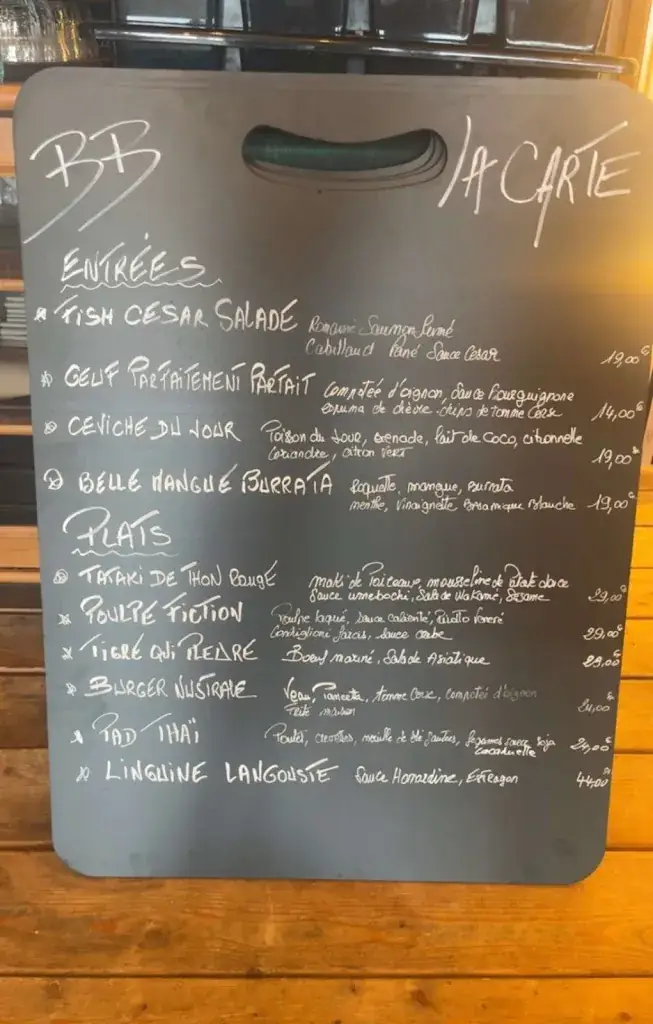 BB
LA CARTE
ENTRÉES
FISH CESAR SALADE Romaine Saumon fumé
Cabillaud Pané Sauce Cesar 19,00€
OEUF PARFAITEMENT PARFAIT compotée d'oignon, Sauce Bourguignone
espuma de chèvre, chips de tomme Corse 14,00€
CEVICHE DU JOUR Poisson du Jour, Grenade, lait de Coco, citronnelle
Coriandre, citron vert 19,00€
BELLE MANGUE BURRATA Roquette, mangue, Burrata
menthe, Vinaigrette Balsamique Blanche 19,00€
PLATS
TATAKI DE THON ROUGE maki de Poireaux, mousseline de Patate douce
Sauce umebochi, Salade Wakamé, Sésame 29,00€
POULPE FICTION Poulpe laqué, sauce caliente, Risotto Venere
sauce 29,00€
TIGRE QUI PLEURE Boeuf mariné, Salade Asiatique 29,00€
BURGER NUSTRALE Veau, Pancetta, tomme Corse, compotée d'oignon
Frite maison 24,00
PAD THAÏ Poulet, crevettes, nouille de blé sautées, légumes sauce soja
cacahuette 24,00€
LINGUINE LANGOUSTE Sauce Homardine, Estragon 44,00